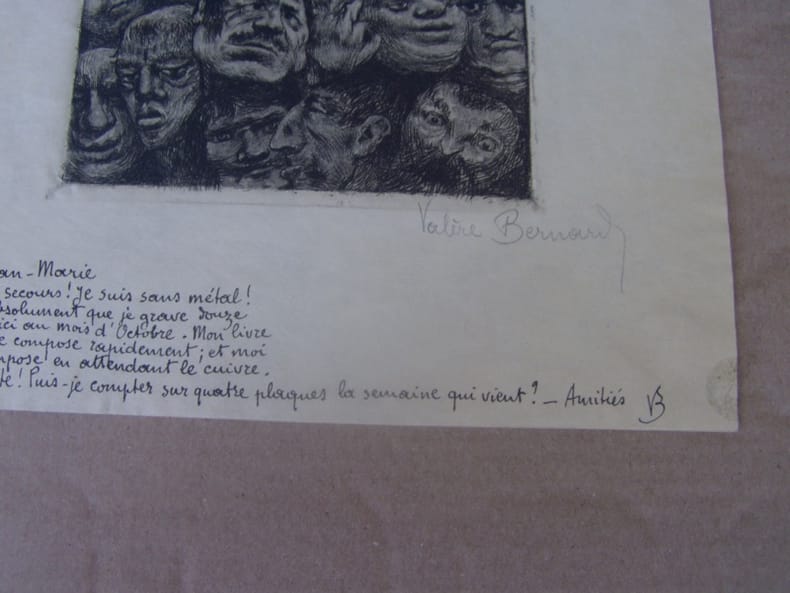 Valère Bernard
an-Marie
secours! Je suis sans métal!
bsolument que je grave douze
ici au mois d'Octobre. Mon livre
e compose rapidement; et moi
mpose en attendant le cuivre.
te! Puis-je compter sur quatre plaques la semaine qui vient? — Amitiés VB